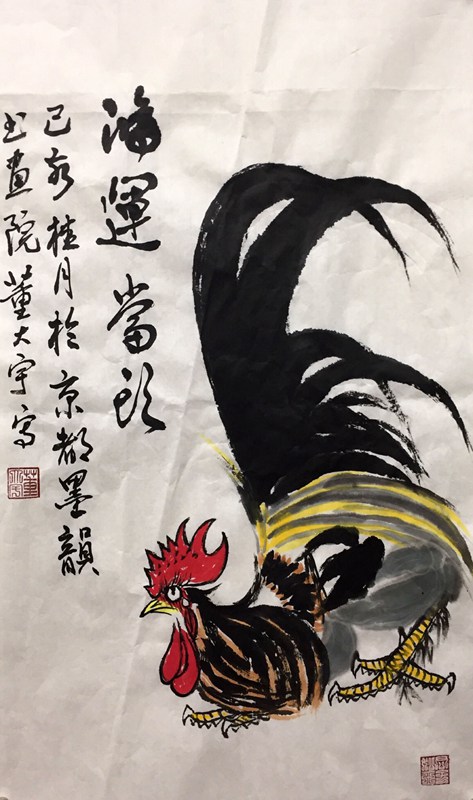 鴻運當頭
己亥桂月於京都墨韻
书畫院董大宇寫